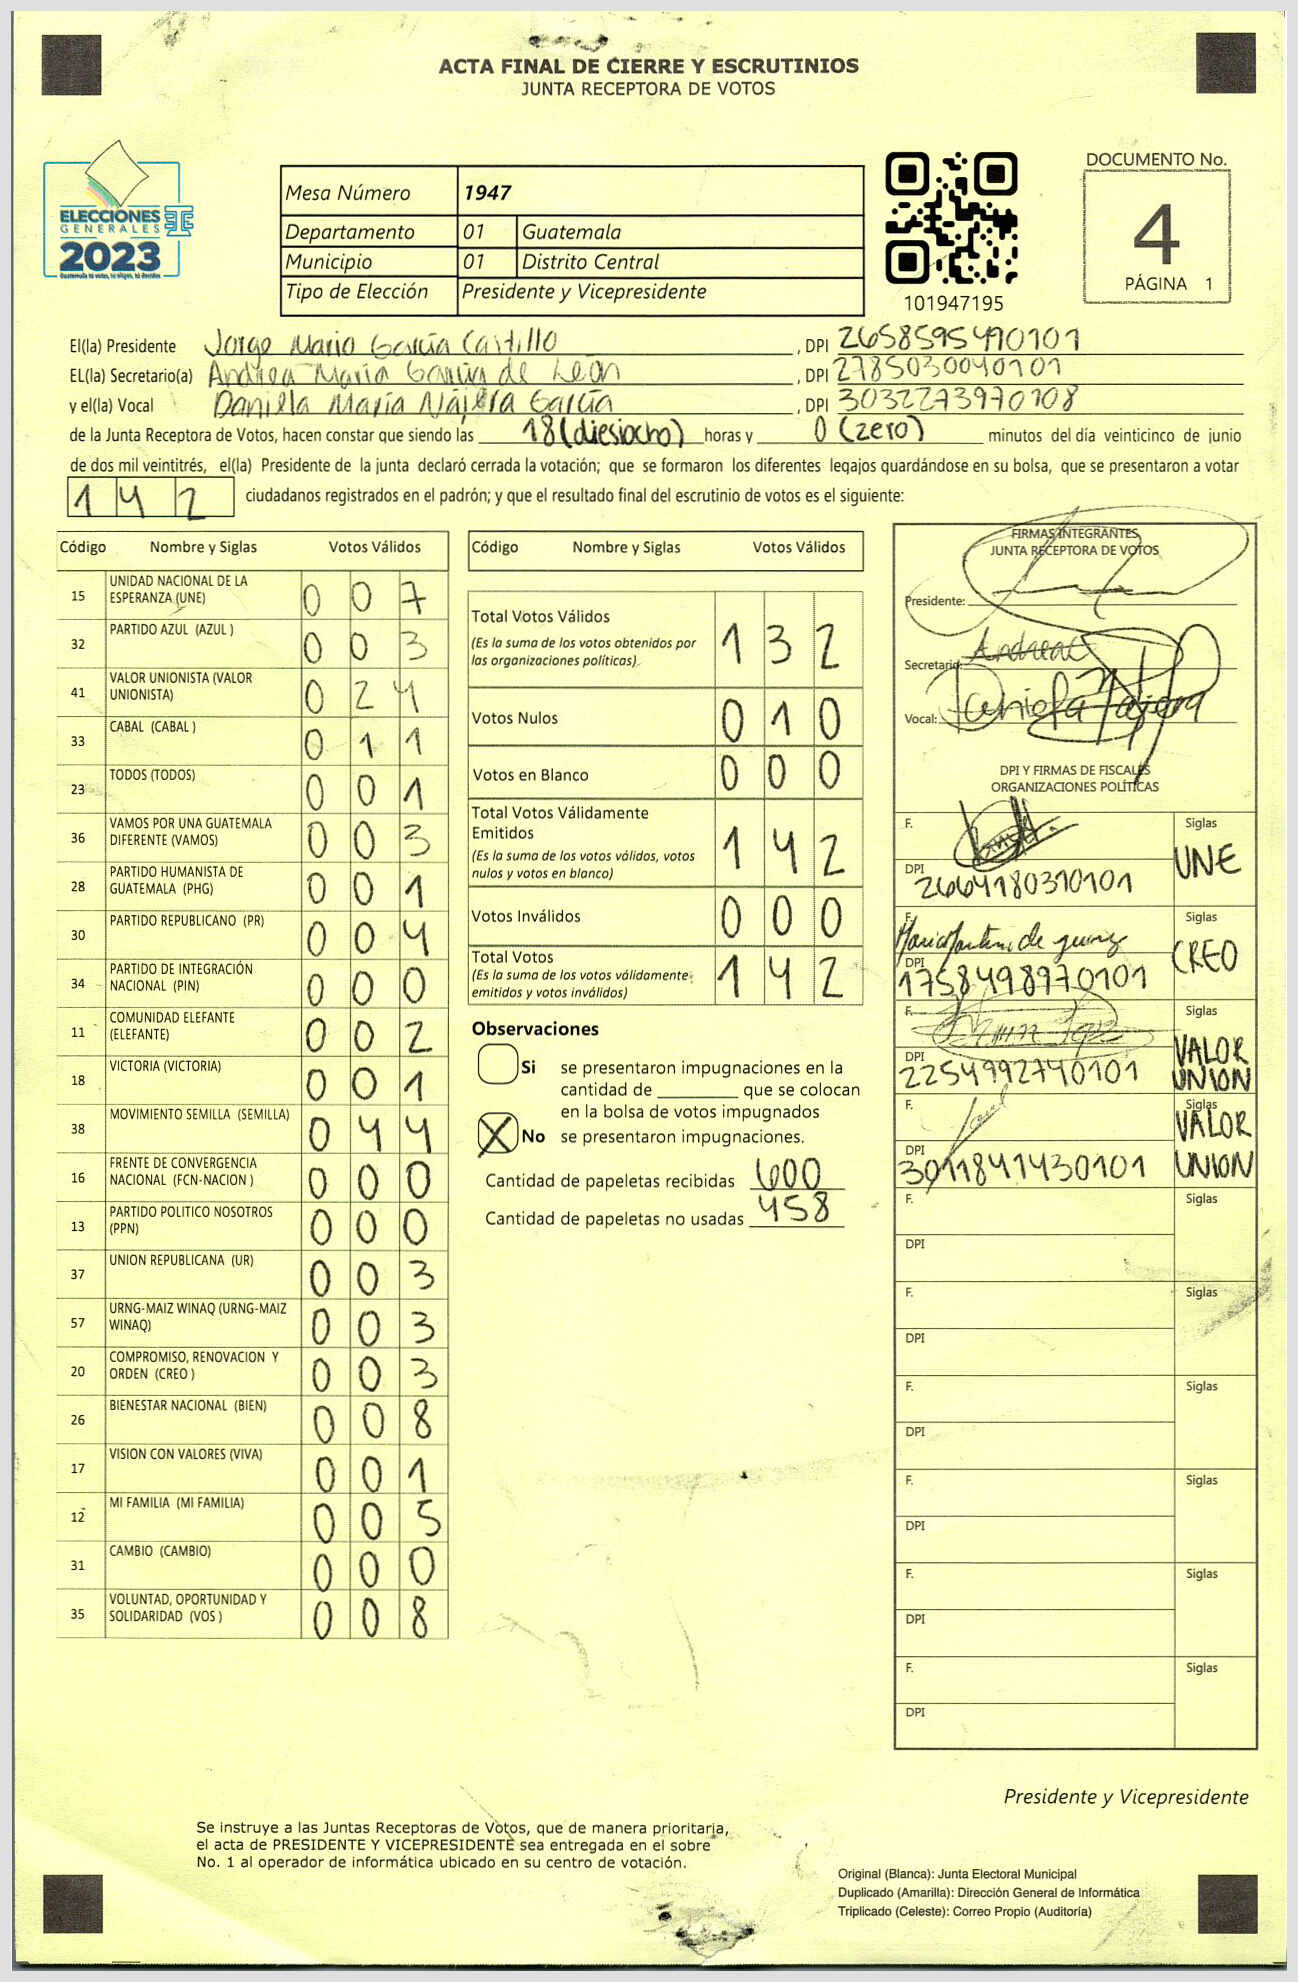 ACTA FINAL DE CIERRE Y ESCRUTINIOS
JUNTA RECEPTORA DE VOTOS
ELECCIONES
GENERALES
2023
Guatemala tú votas, tú eliges, tú decides
Mesa Número 1947
Departamento 01 Guatemala
Municipio 01 Distrito Central
Tipo de Elección Presidente y Vicepresidente
101947195
DOCUMENTO No.
4
PÁGINA 1
El(la) Presidente Jorge Mario García Castillo, DPI 2658595490101
EL(la) Secretario(a) Andrea María García de León, DPI 2785030040101
y el(la) Vocal Daniela María Nájera García, DPI 3032273970108
de la Junta Receptora de Votos, hacen constar que siendo las 18 (diesiocho) horas y 0 (zero) minutos del día veinticinco de junio
de dos mil veintitrés, el(la) Presidente de la junta declaró cerrada la votación; que se formaron los diferentes legajos quardándose en su bolsa, que se presentaron a votar
142 ciudadanos registrados en el padrón; y que el resultado final del escrutinio de votos es el siguiente:
Código Nombre y Siglas Votos Válidos
15 UNIDAD NACIONAL DE LA ESPERANZA (UNE) 007
32 PARTIDO AZUL (AZUL ) 003
41 VALOR UNIONISTA (VALOR UNIONISTA) 024
33 CABAL (CABAL ) 011
23 TODOS (TODOS) 001
36 VAMOS POR UNA GUATEMALA DIFERENTE (VAMOS) 003
28 PARTIDO HUMANISTA DE GUATEMALA (PHG) 001
30 PARTIDO REPUBLICANO (PR) 004
34 PARTIDO DE INTEGRACIÓN NACIONAL (PIN) 000
11 COMUNIDAD ELEFANTE (ELEFANTE) 002
18 VICTORIA (VICTORIA) 001
38 MOVIMIENTO SEMILLA (SEMILLA) 044
16 FRENTE DE CONVERGENCIA NACIONAL (FCN-NACION ) 000
13 PARTIDO POLITICO NOSOTROS (PPN) 000
37 UNION REPUBLICANA (UR) 003
57 URNG-MAIZ WINAQ (URNG-MAIZ WINAQ) 003
20 COMPROMISO, RENOVACION Y ORDEN (CREO ) 003
26 BIENESTAR NACIONAL (BIEN) 008
17 VISION CON VALORES (VIVA) 001
12 MI FAMILIA (MI FAMILIA) 005
31 CAMBIO (CAMBIO) 000
35 VOLUNTAD, OPORTUNIDAD Y SOLIDARIDAD (VOS ) 008
Código Nombre y Siglas Votos Válidos
Total Votos Válidos 132
(Es la suma de los votos obtenidos por
las organizaciones políticas).
Votos Nulos 010
Votos en Blanco 000
Total Votos Válidamente
Emitidos 142
(Es la suma de los votos válidos, votos
nulos y votos en blanco)
Votos Inválidos 000
Total Votos 142
(Es la suma de los votos válidamente
emitidos y votos inválidos)
Observaciones
Si se presentaron impugnaciones en la
cantidad de ________ que se colocan
en la bolsa de votos impugnados
X No se presentaron impugnaciones.
Cantidad de papeletas recibidas 600
Cantidad de papeletas no usadas 458
FIRMAS INTEGRANTES
JUNTA RECEPTORA DE VOTOS
Presidente:
Secretario: Andrea
Vocal: Daniela Nájera
DPI Y FIRMAS DE FISCALES
ORGANIZACIONES POLÍTICAS
F. Siglas
DPI 2664180310101 UNE
F. Siglas
DPI 1758498970101 CREO
F. Siglas
DPI 2254992740101 VALOR UNION
F. Siglas
DPI 3011841430101 VALOR UNION
F. Siglas
DPI
F. Siglas
DPI
F. Siglas
DPI
F. Siglas
DPI
F. Siglas
DPI
F. Siglas
DPI
Presidente y Vicepresidente
Se instruye a las Juntas Receptoras de Votos, que de manera prioritaria,
el acta de PRESIDENTE Y VICEPRESIDENTE sea entregada en el sobre
No. 1 al operador de informática ubicado en su centro de votación.
Original (Blanca): Junta Electoral Municipal
Duplicado (Amarilla): Dirección General de Informática
Triplicado (Celeste): Correo Propio (Auditoría)